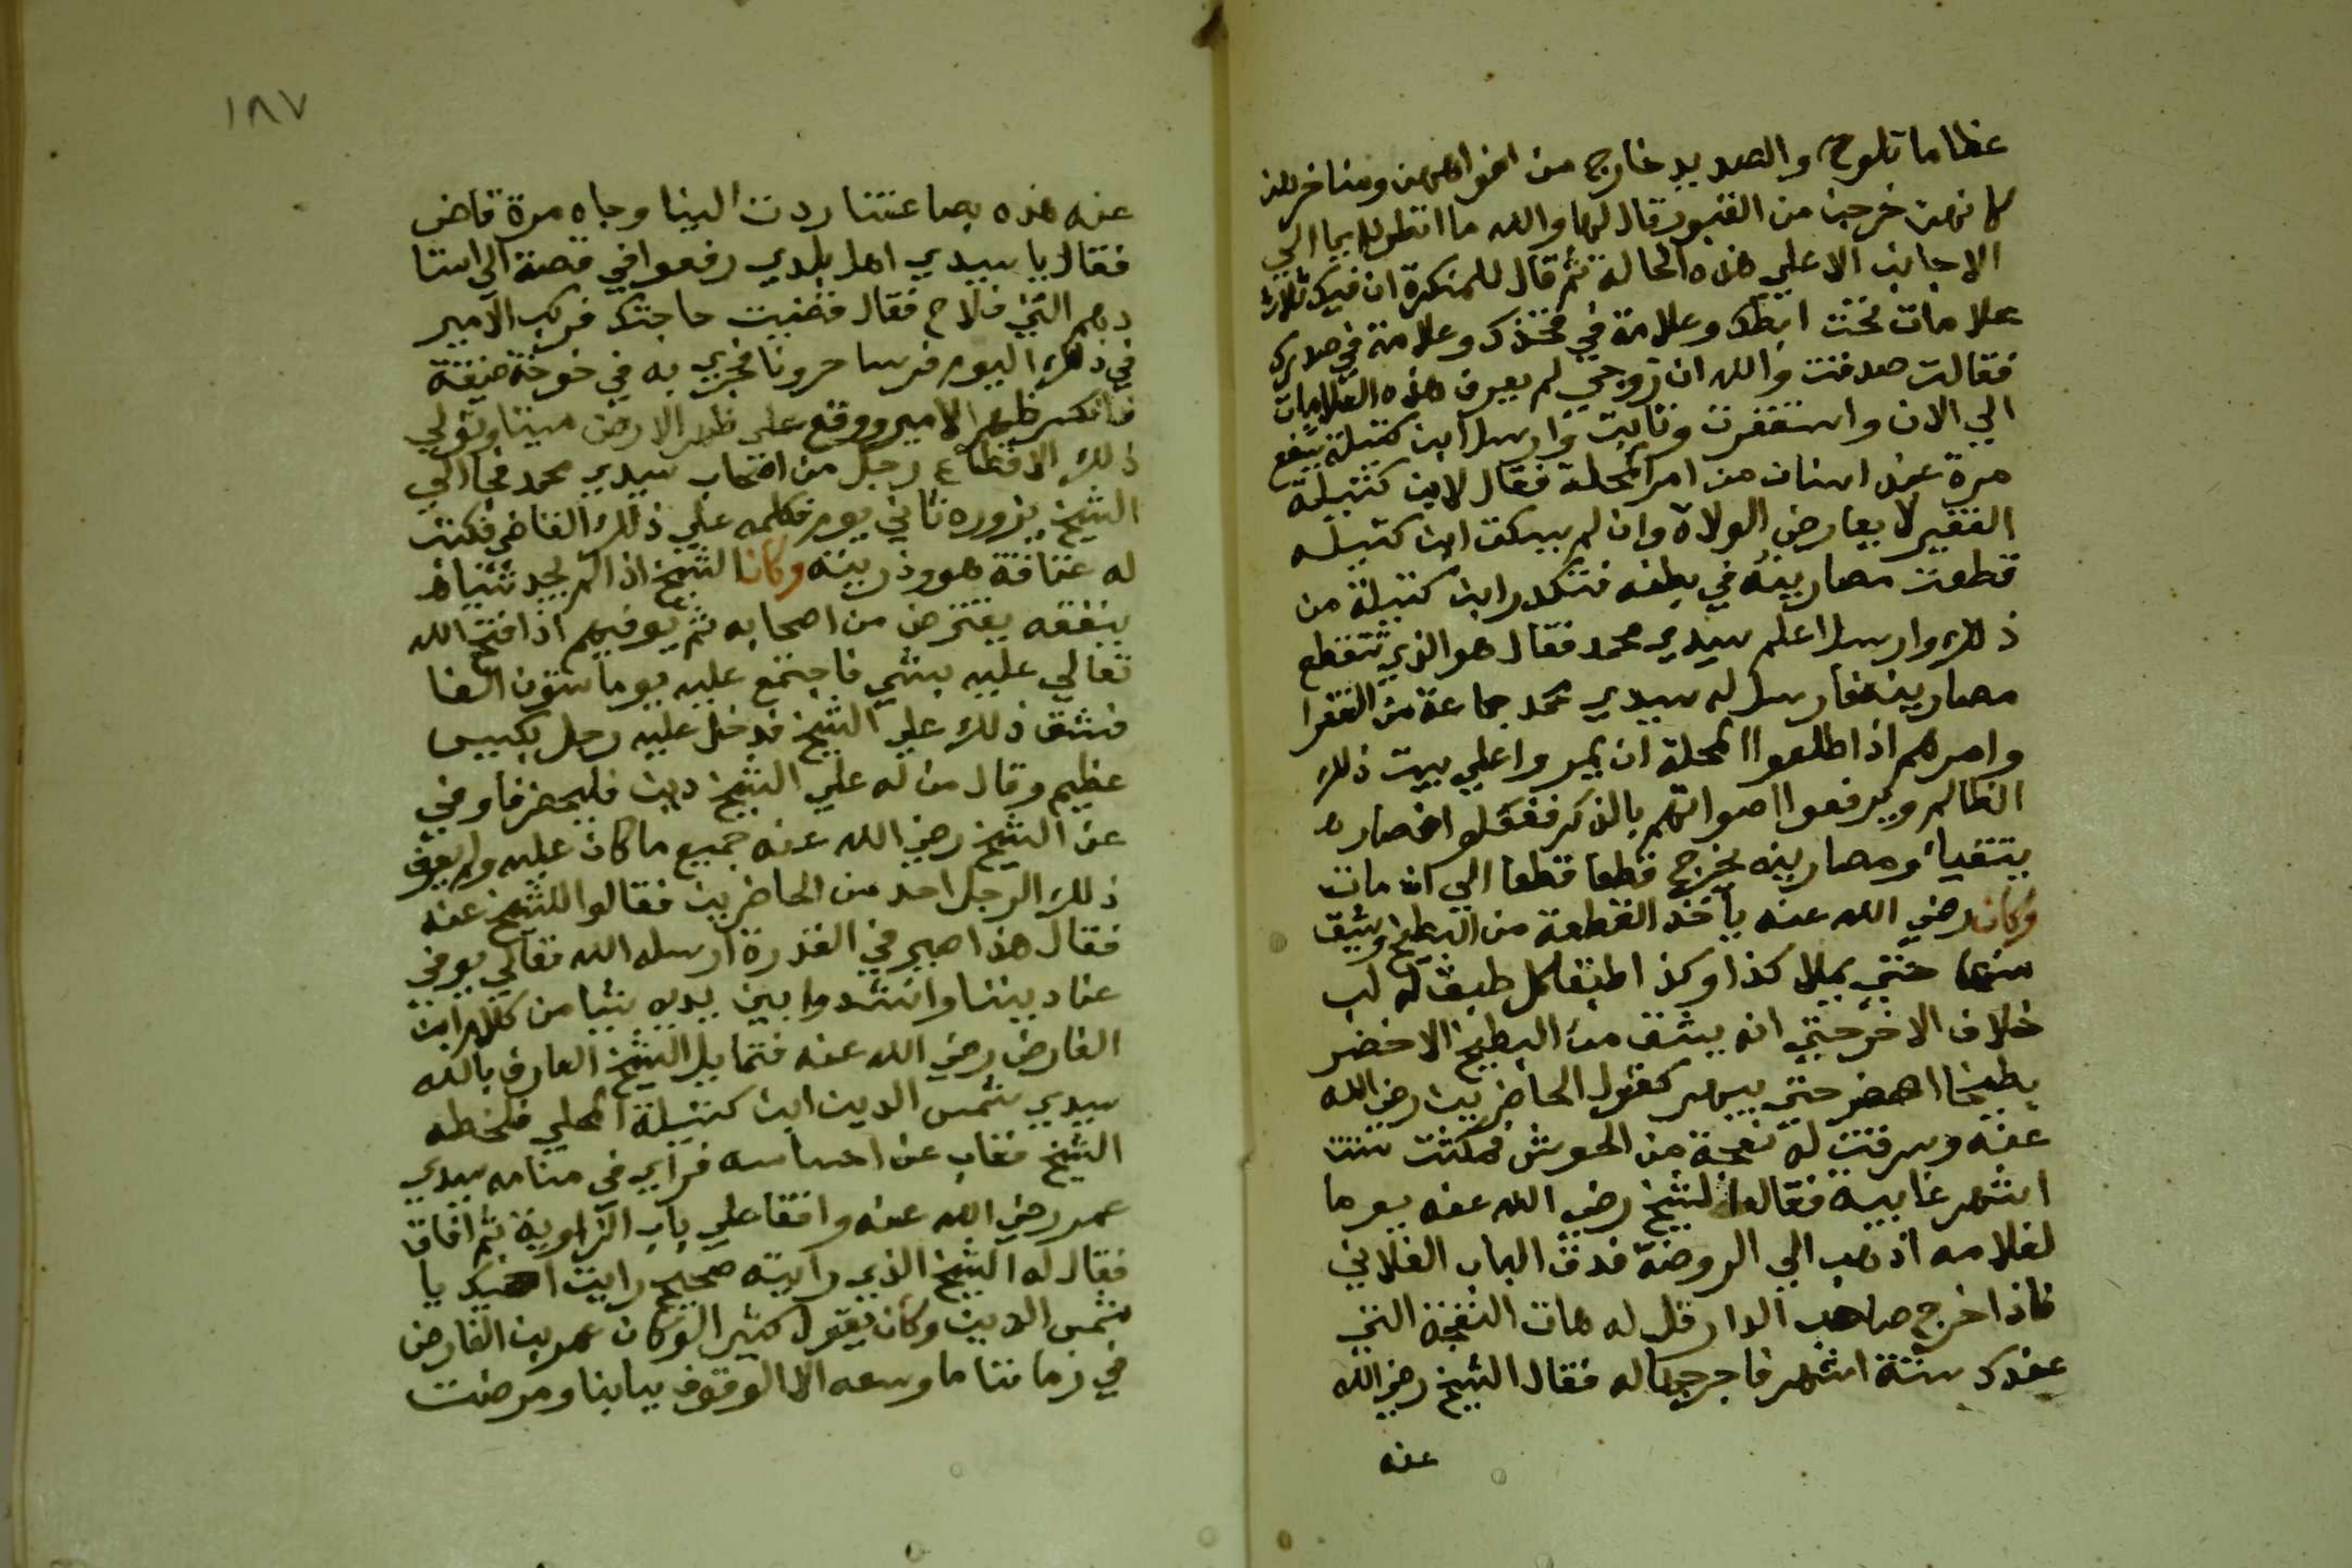 عظاما تلوح والصديد خارج من افواههن ومناخرهن
كانهن خرجن من القبور فقال لها والله ما انظر دايما الي
الاجانب الا علي هذه الحالة ثم قال للمنكرة ان فيك ثلاث
علامات تحت ابطك وعلامة في فخذك وعلامة في صدرك
فقالت صدقت والله ان زوجي لم يعرف هذه العلامات
الي الان واستغفرت وتابت وارسل ابن كتيلة يشفع
مرة عند انسان من امرا المحلة فقال لابن كتيلة
الفقير لا يعارض الولاة وان لم يسكت ابن كتيله
قطعت مصارينه في بطنه فتكدر ابن كتيلة من
ذلك وارسل اعلم سيدي محمد فقال هو الذي تتقطع
مصارينه فارسل له سيدي محمد جماعة من الفقرا
وامرهم اذا طلعوا المحلة ان يمروا علي بيت ذلك
الظالم ويرفعوا اصواتهم بالذكر ففعلوا فصار
يتقيا ومصارينه تخرج قطعا قطعا الي ان مات
وكان رضي الله عنه ياخذ القطعة من البطيخ ويشق
منها حتي يملا كذا وكذا طبقا كل طبق له لب
خلاف الاخر حتي انه يشق من البطيخ الاخضر
بطيخا اصفر حتي يبهر عقول الحاضرين رضي الله
عنه وسرقت له نعجة من الحوش فمكثت ستت
اشهر غايبة فقال الشيخ رضي الله عنه يوما
لغلامه اذهب الي الروضة فدق الباب الفلاني
فاذا خرج صاحب الدار قل له هات النعجة التي
عندك ستة اشهر فاخرجها له فقال الشيخ رضي الله
عنه
١٨٧
عنه هذه بضاعتنا ردت الينا وجاه مرة قاض
فقال يا سيدي اهل بلدي رفعوا في قصة الي استا
دهم التي فلاح فقال قضيت حاجتك فركب الامير
في ذلك اليوم فرسا حرونا فجري به في خوخة ضيقة
فانكسر ظهر الامير ووقع علي ظهر الارض ميتا وتولي
ذلك الاقطاع رجل من اصحاب سيدي محمد فجا الي
الشيخ يزوره ثاني يوم فكلمه علي ذلك القاضي فكتب
له عتاقة هو وذريته وكان الشيخ اذا لم يجد شيا
ينفقه يقترض من اصحابه ثم يوفيهم اذا فتح الله
تعالي عليه بشي فاجتمع عليه يوما ستون الفا
فشق ذلك علي الشيخ فدخل عليه رجل بكيس
عظيم وقال من له علي الشيخ دين فليحضر فاوفي
عن الشيخ رضي الله عنه جميع ما كان عليه ولم يعرف
ذلك الرجل احد من الحاضرين فقالوا للشيخ عنه
فقال هذا صيرفي القدرة ارسله الله تعالي يوفي
عنا ديننا وانشدوا بين يديه شيا من كلام ابن
الفارض رضي الله عنه فتمايل الشيخ العارف بالله
سيدي شمس الدين ابن كتيلة المحلي فلحظه
الشيخ فغاب عن احساسه فراي في منامه سيدي
عمر رضي الله عنه واقفا علي باب الزاوية ثم افاق
فقال له الشيخ الذي رايته صحيح رايت يا
شمس الدين وكان يقول كثيرا لو كان عمر بن الفارض
في زماننا ما وسعه الا الوقوف ببابنا ومرضت